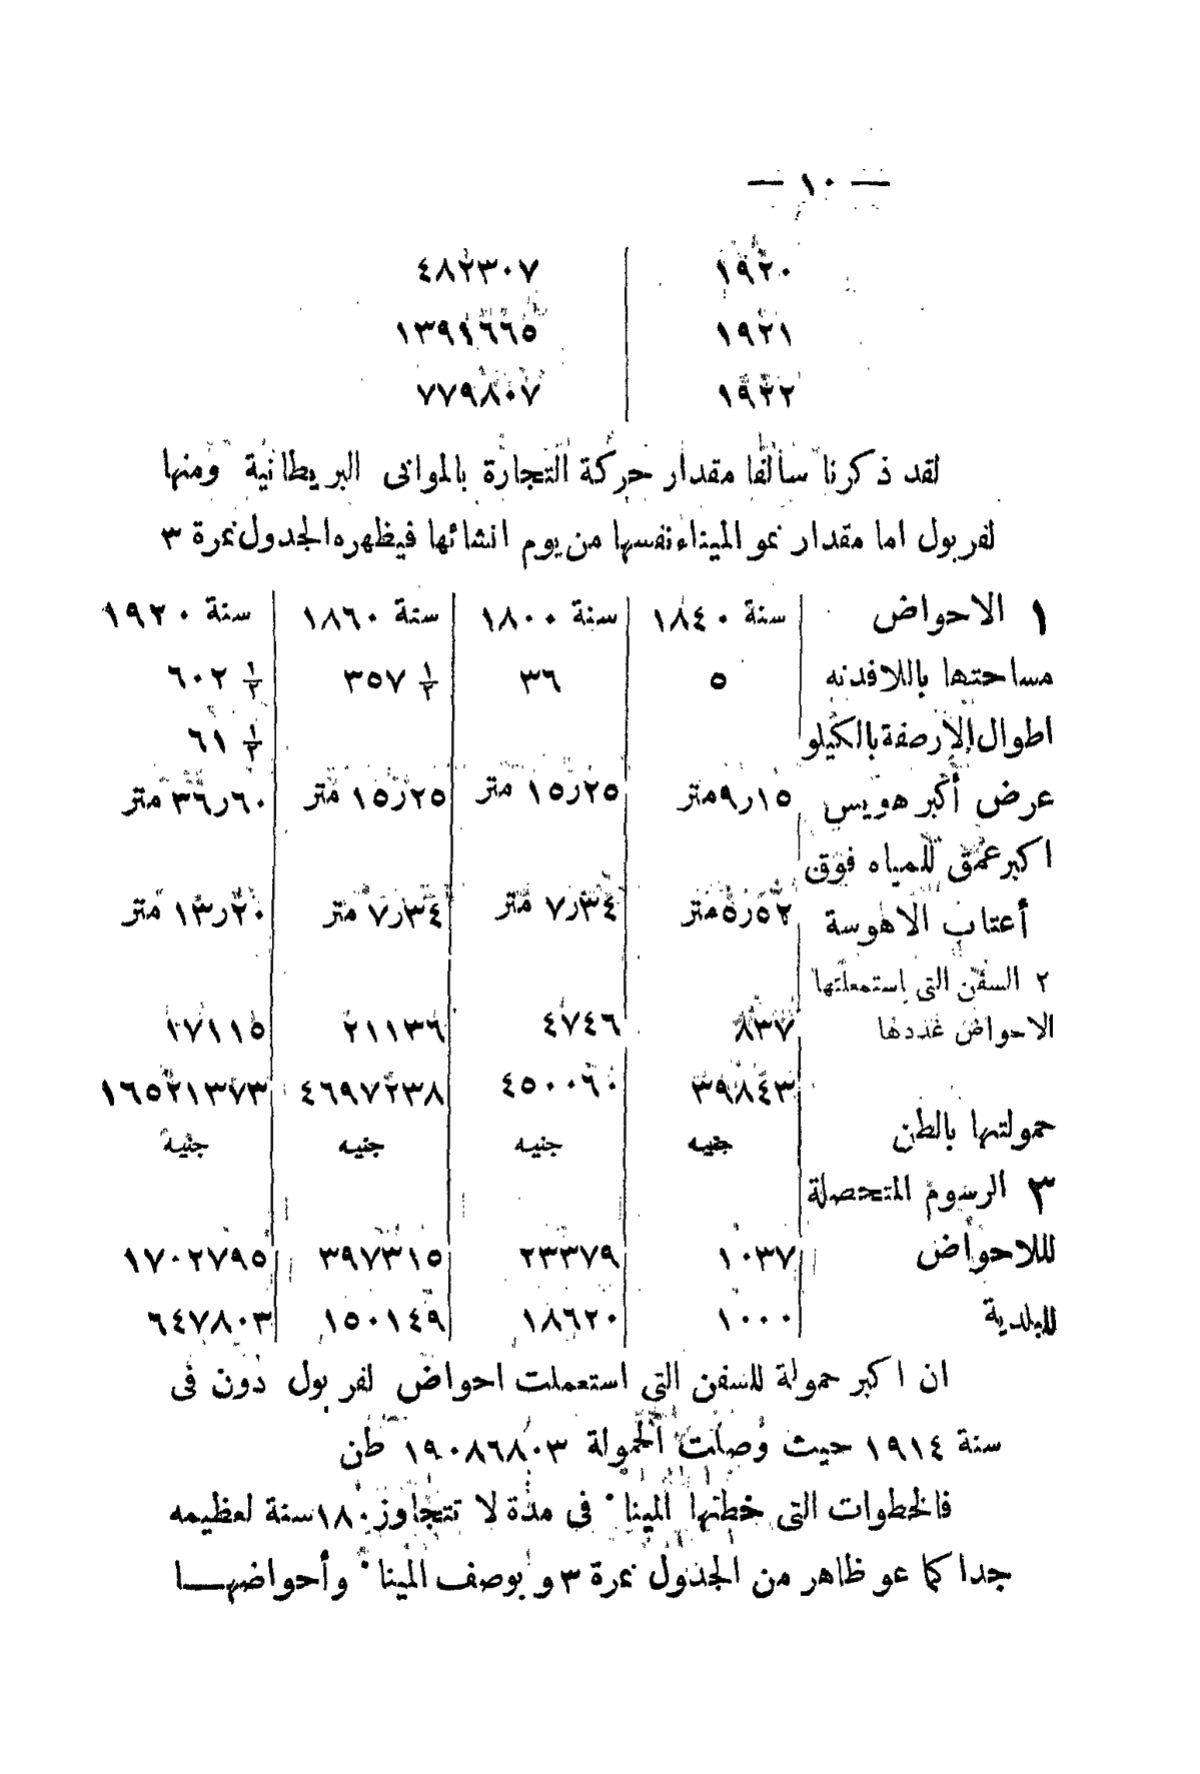 — ١٠ —
١٩٢٠ | ٤٨٢٣٠٧
١٩٢١ | ١٣٩٤٦٦٥
١٩٢٢ | ٧٧٩٨٠٧
لقد ذكرنا سالفا مقدار حركة التجارة بالموانى البريطانية ومنها
لفربول اما مقدار نمو الميناء نفسها من يوم انشائها فيظهره الجدول نمرة ٣
١ الاحواض | سنة ١٨٤٠ | سنة ١٨٠٠ | سنة ١٨٦٠ | سنة ١٩٢٠
مساحتها باللافدنه | ٥ | ٣٦ | ٣٥٧ ١/٢ | ٦٠٢ ١/٢
اطوال الارصفة بالكيلو | ٦١ ١/٢
عرض أكبر هويس | ٩٫١٥ متر | ١٥٫٢٥ متر | ١٥٫٢٥ متر | ٣٦٫٦٠ متر
اكبر عمق للمياه فوق
أعتاب الاهوسة | ٥٫٥٢ متر | ٧٫٣٤ متر | ٧٫٣٤ متر | ١٣٫٢٠ متر
٢ السفن التى إستمعلتها
الاحواض عددها | ٨٣٧ | ٤٧٤٦ | ٢١١٣٦ | ١٧١١٥
٣٩٨٤٣ | ٤٥٠٠٦٠ | ٤٦٩٧٢٣٨ | ١٦٥٢١٣٧٣
حمولتها بالطن
جنيه | جنيه | جنيه | جنية
٣ الرسوم المتحصلة
لللاحواض | ١٠٣٧ | ٢٣٣٧٩ | ٣٩٧٣١٥ | ١٧٠٢٧٩٥
للبلدية | ١٠٠٠ | ١٨٦٢٠ | ١٥٠١٤٩ | ٦٤٧٨٠٣
ان اكبر حمولة للسفن التى استعملت احواض لفربول دون فى
سنة ١٩١٤ حيث وصلت الحمولة ١٩٠٨٦٨٠٣ طن
فالخطوات التى خطتها المينا٠ فى مدة لا تتجاوز ١٨٠ سنة لعظيمه
جدا كما عو ظاهر من الجدول نمرة ٣ و بوصف المينا٠ وأحواضهـــا